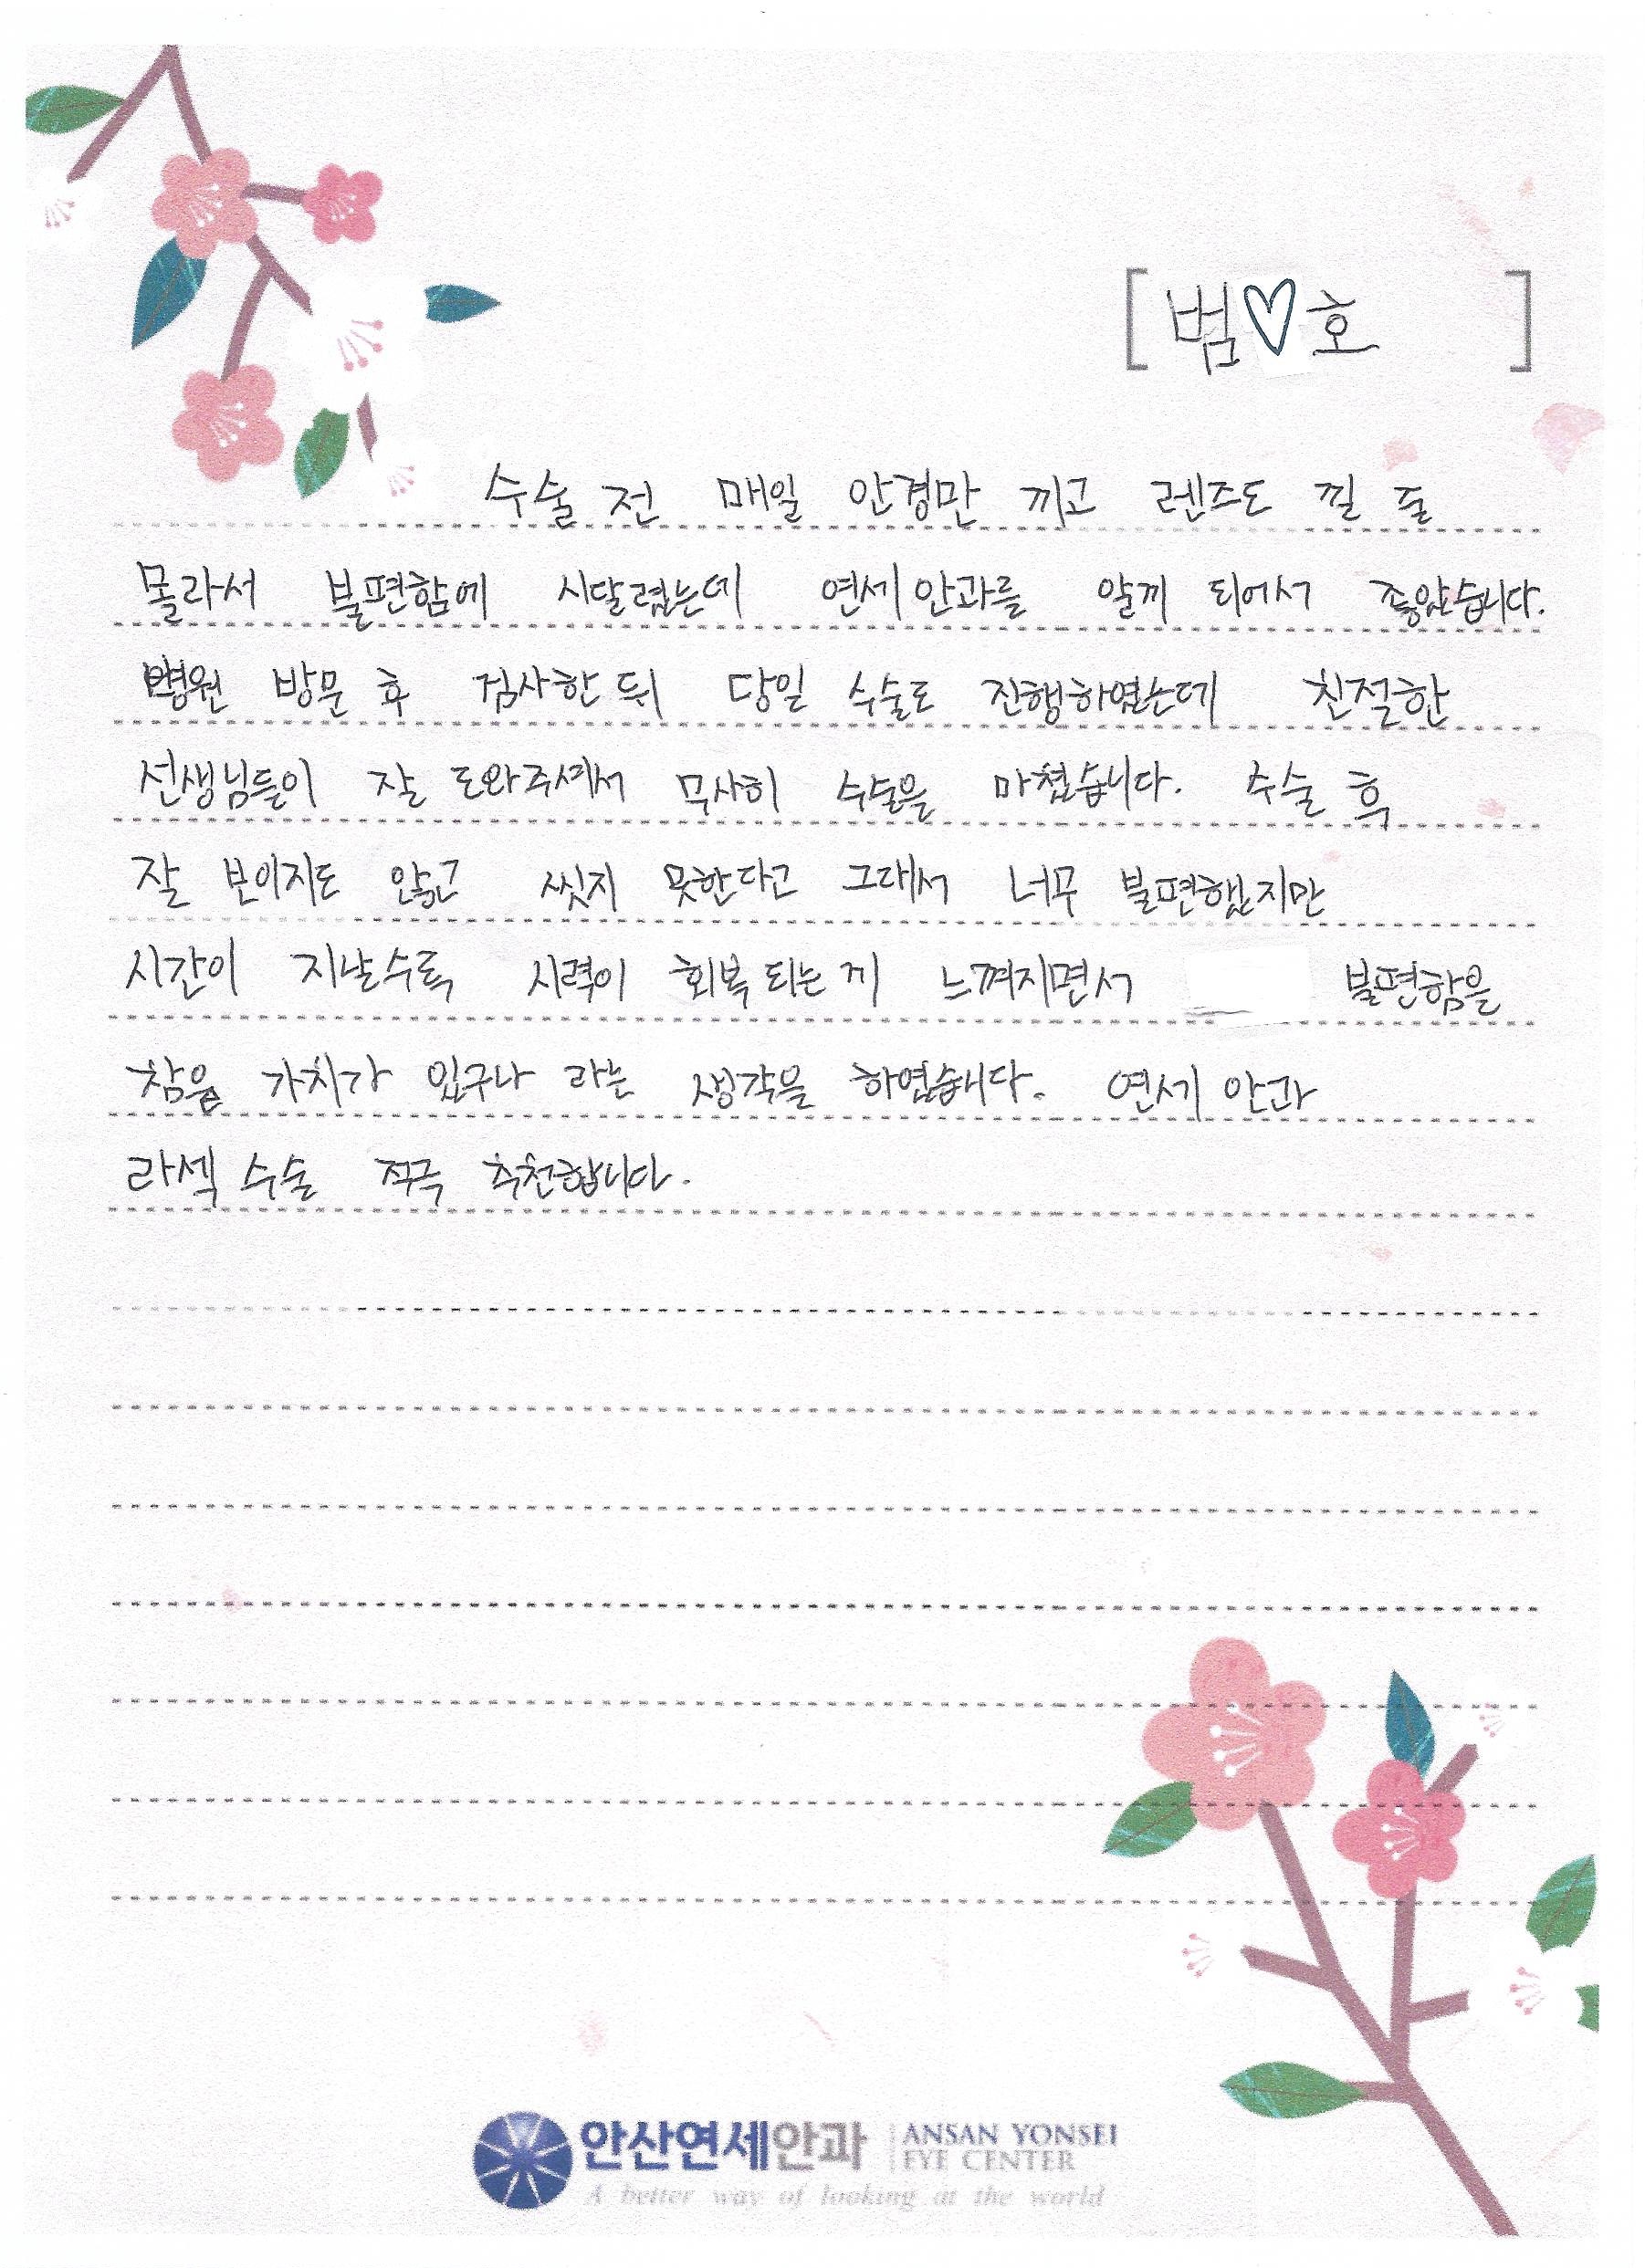 [ 범♡호 ]
수술 전 매일 안경만 끼고 렌즈도 낄 줄
몰라서 불편함에 시달렸는데 연세안과를 알께 되어서 좋았습니다.
병원 방문 후 검사한 뒤 당일 수술로 진행하였는데 친절한
선생님들이 잘 도와주셔서 무사히 수술을 마쳤습니다. 수술 후
잘 보이지도 않고 씻지 못한다고 그래서 너무 불편했지만
시간이 지날수록 시력이 회복 되는게 느껴지면서 불편함을
참을 가치가 있구나 라는 생각을 하였습니다. 연세 안과
라섹 수술 적극 추천합니다.
안산연세안과 ANSAN YONSEI
EYE CENTER
A better way of looking at the world